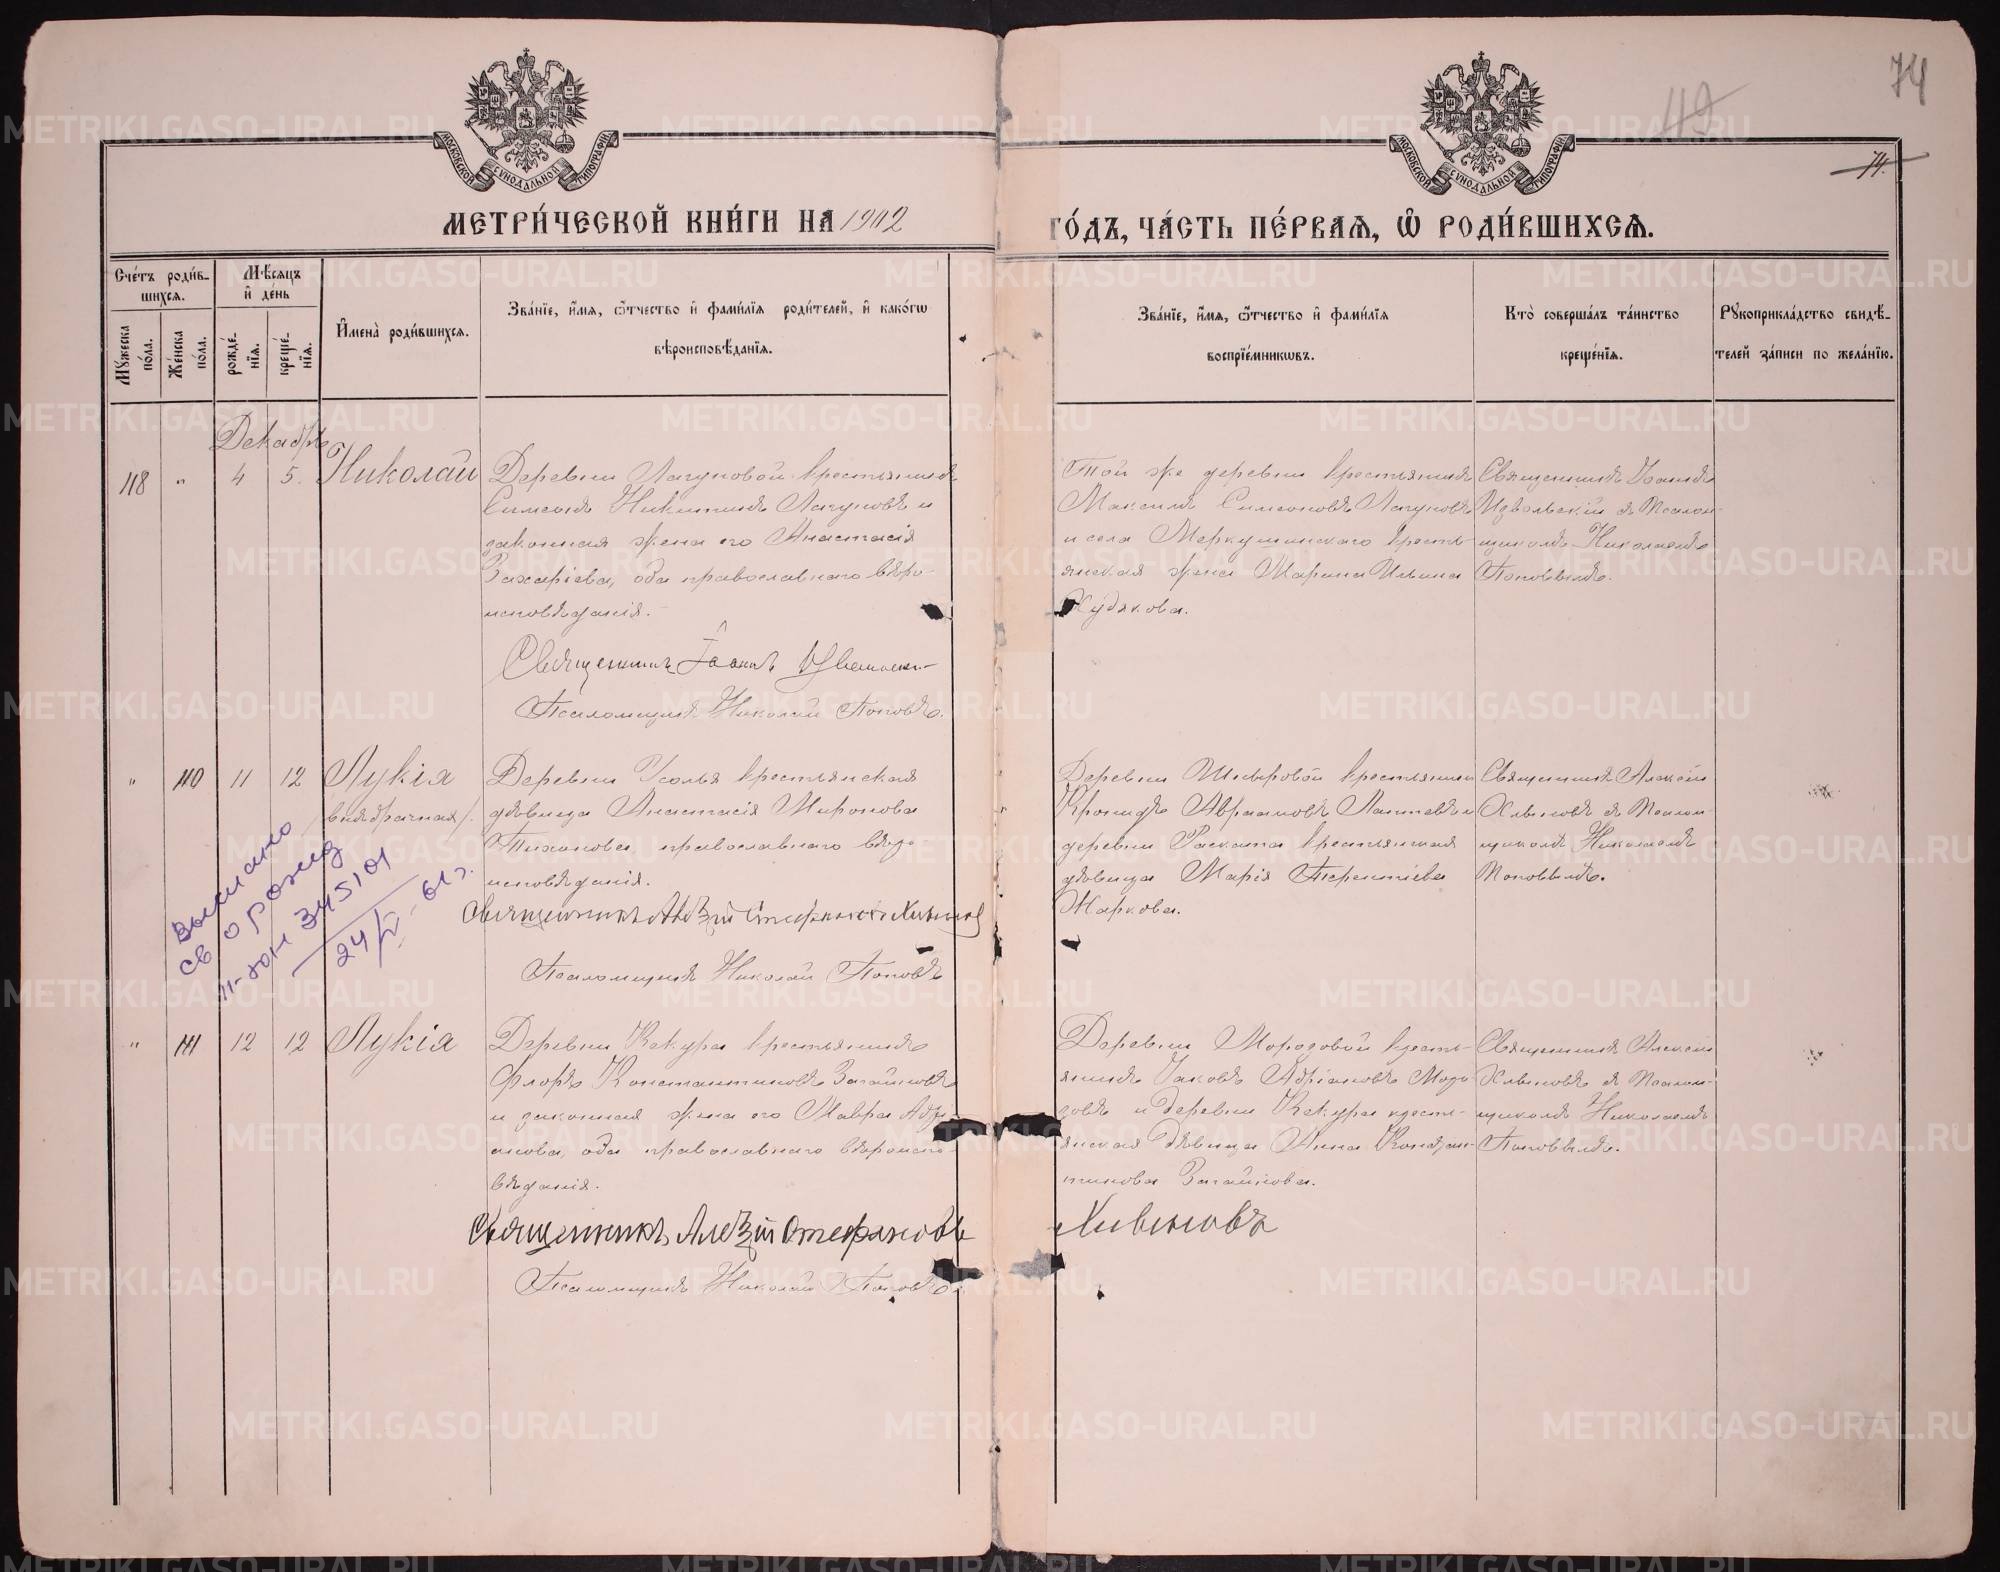 74
49
74.
МОСКОВСКОЙ СУНОДАЛЬНОЙ ТИПОГРАФІИ
МОСКОВСКОЙ СУНОДАЛЬНОЙ ТИПОГРАФІИ
МЕТРИ́ЧЕСКОЙ КНИ́ГИ НА 1902 ГО́ДЪ, ЧА́СТЬ ПЕ́РВАѦ, Ѡ҆ РОДИ́ВШИХСѦ.
Сче́тъ роди́в-
шихсѧ.
Мѣ́сѧцъ
и҆ де́нь
Мꙋжеска
по́ла.
Же́нска
по́ла.
рожде́-
нїѧ.
креще́-
нїѧ.
И҆мена̀ роди́вшихсѧ.
Зва́нїе, и҆́мѧ, ѻ҆́тчество и҆ фами́лїѧ роди́телей, и҆ како́гѡ
вѣроисповѣ́данїѧ.
Зва́нїе, и҆́мѧ, ѻ҆́тчество и҆ фами́лїѧ
воспрїе́мникѡвъ.
Кто̀ соверша́лъ та́инство
креще́нїѧ.
Рꙋкоприкла́дство свидѣ́-
телей за́писи по жела́нїю.
Декабрь
118 " 4 5. Николай
Деревни Лагуновой крестьянинъ
Симеонъ Никитинъ Лагуновъ и
законная жена его Анастасія
Захаріева, оба православнаго вѣро-
исповѣданія.
Священникъ Іоаннъ
Псаломщикъ Николай Поповъ.
Той же деревни крестьянинъ
Максимъ Симеоновъ Лагуновъ
и села Меркушинскаго кресть-
янская жена Марина Ильина
Худякова.
Священникъ Іоаннъ
Удвольскій съ Псалом-
щикомъ Николаемъ
Поповымъ.
" 110 11 12 Лукія
/внѣбрачная/.
Деревни Усолья крестьянская
дѣвица Анастасія Миронова
Тиханова, православнаго вѣро-
исповѣданія.
Священникъ Алексій Стефановъ Хлыновъ
Псаломщикъ Николай Поповъ
Деревни крестьянинъ
Кронидъ Авраамовъ Лаптевъ и
деревни Раската крестьянская
дѣвица Марія Терентіева
Маркова.
Священникъ Алексій
Хлыновъ съ Псалом-
щикомъ Николаемъ
Поповымъ.
выслано
св о рожд
345101
24/V-61г.
" 111 12 12 Лукія
Деревни Кекура крестьянинъ
Флоръ Константиновъ Загайновъ
и законная жена его Мавра Адрі-
анова, оба православнаго вѣроиспо-
вѣданія.
Священникъ Алексій Стефановъ Хлыновъ
Псаломщикъ Николай Поповъ.
Деревни Морозовой кресть-
янинъ Іаковъ Адріановъ Моро-
зовъ и деревни Кекура кресть-
янская дѣвица Анна Констан-
тинова Загайнова.
Священникъ Алексій
Хлыновъ съ Псалом-
щикомъ Николаемъ
Поповымъ.
METRIKI.GASO-URAL.RU